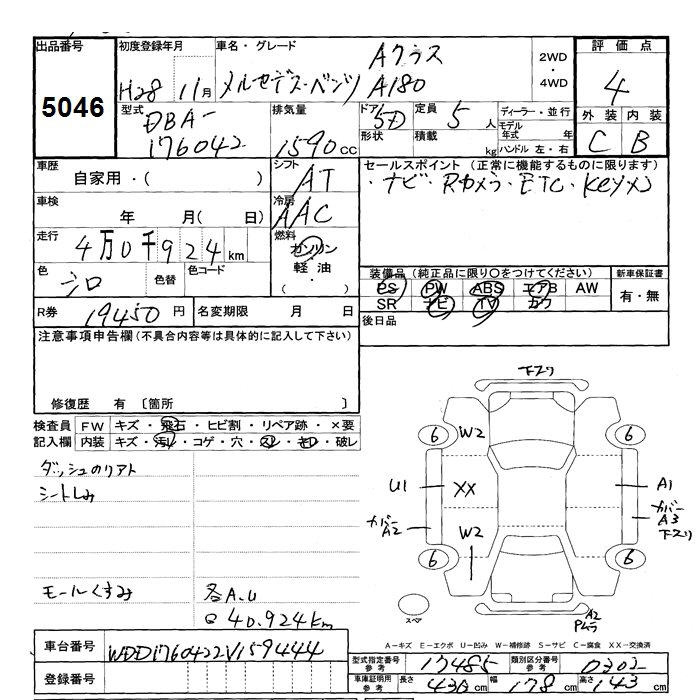 出品番号 初度登録年月 車名・グレード 2WD・4WD 評価点
5046 H28 11月 メルセデス・ベンツ Aクラス A180 4
型式 排気量 ドア 定員 ディーラー・並行 外装 内装
DBA-176042 1590cc 5D 5人 モデル年式 年 C B
形状 積載 kg ハンドル 左・右
車歴 シフト セールスポイント (正常に機能するものに限ります)
自家用・( ) AT ・ナビ・Rカメラ・ETC・Keyx2
車検 冷房
年 月( 日) AAC
走行 燃料
4万0千924km ガソリン
軽油・( )
色 色替 色コード 装備品(純正品に限り○をつけてください) 新車保証書
シロ PS PW ABS エアB AW 有・無
SR ナビ TV カワ
R券 19450円 名変期限 月 日 後日品
注意事項申告欄(不具合内容等は具体的に記入して下さい)
修復歴 有 〔箇所 〕
検査員 FW キズ・飛石・ヒビ割・リペア跡・×要
記入欄 内装 キズ・汚れ・コゲ・穴・スレ・モロ・破レ
下スリ
ダッシュのリアト
シートしみ
6 W2 6
U1 XX A1
カバー A2 カバー A3 下スリ
6 W2 6
モールくすみ 各A.U
40.924km
スペア
A2
A-キズ E-エクボ U-凹み W-補修跡 S-サビ C-腐食 XX-交換済
車台番号 WDD1760422V159444
型式指定番号 参考 17485 類別区分番号 参考 0302
登録番号
車庫証明用 参考 長さ 430cm 幅 178cm 高さ 143cm